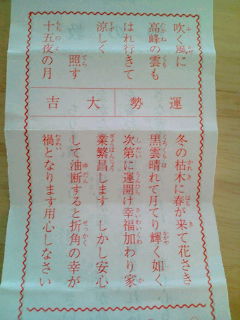 吹く風に
高峰の雲も
はれ行きて
涼しく
照す
十五夜の月
運勢
大吉
冬の枯木に春が来て花さき
黒雲晴れて月てり輝く如く
次第に運開け幸福加わり家
業繁昌します しかし安心
して油断すると折角の幸が
禍となります用心しなさい